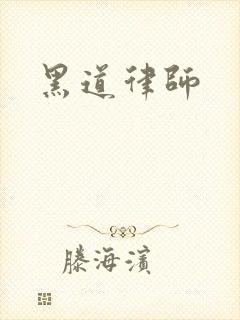 黑道律師
滕海濱